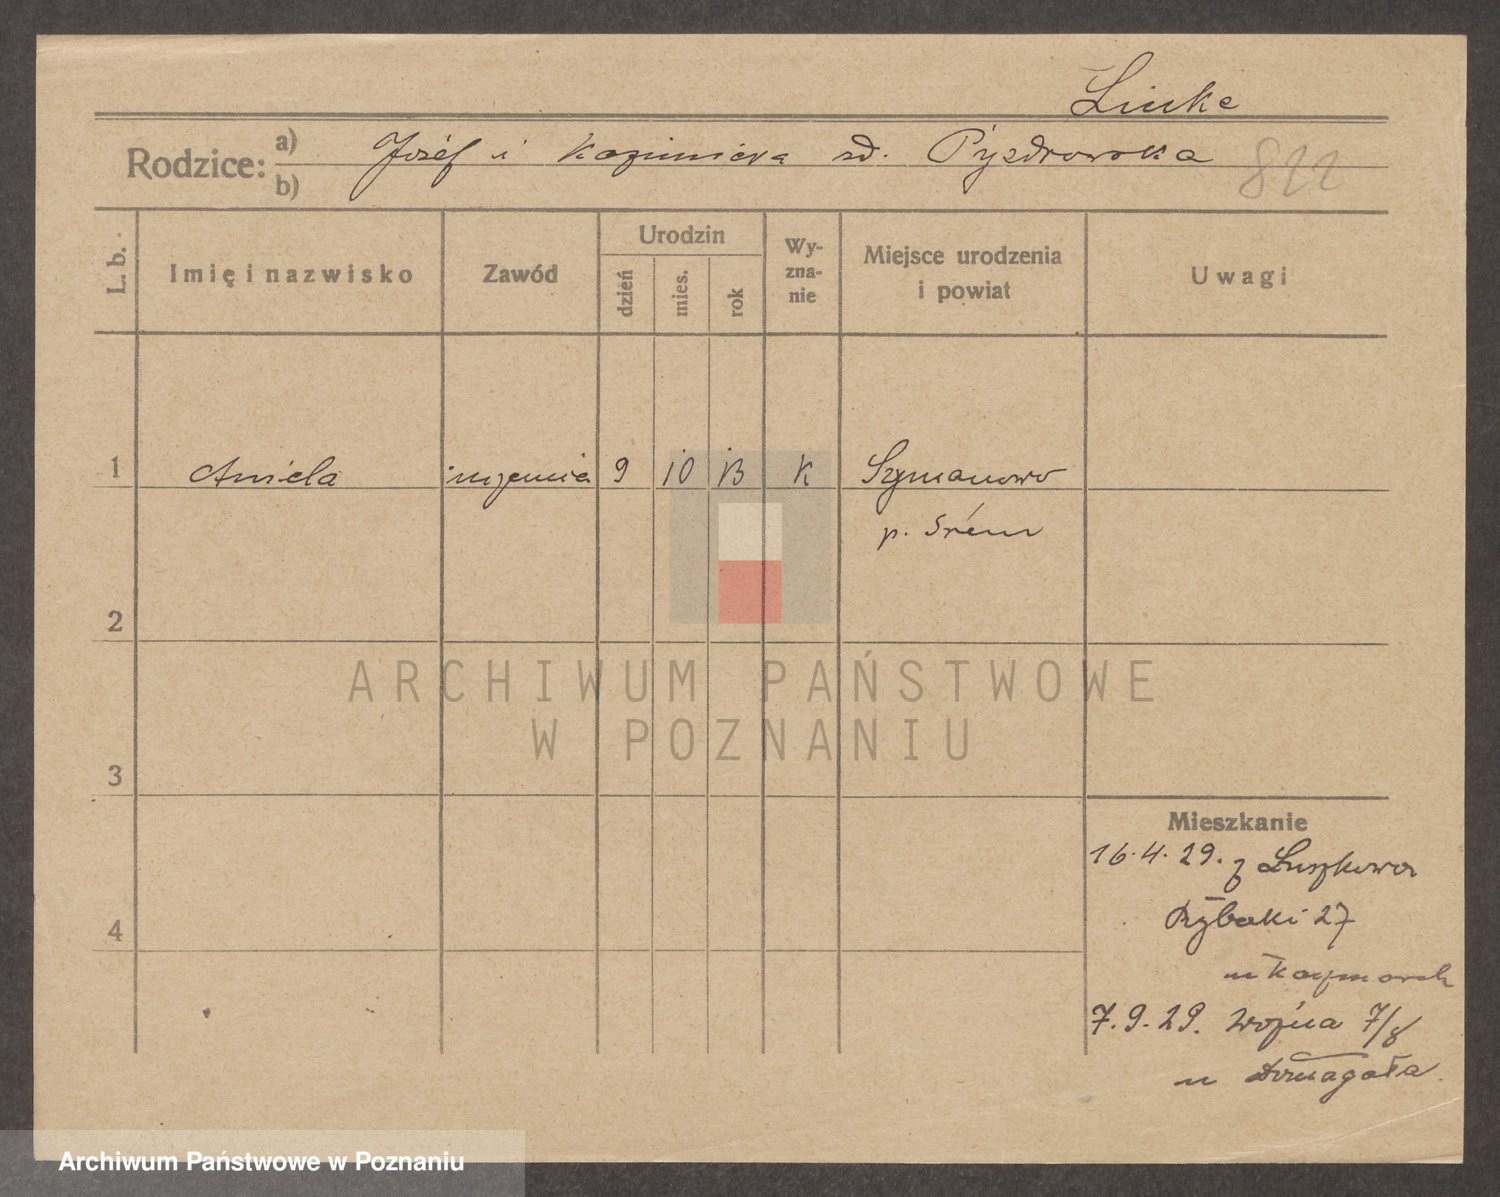 Linke
Rodzice: a) b) Józef i Kazimiera zd. Pyzdrowska 822
L. b. Imię i nazwisko Zawód Urodzin dzień mies. rok Wy-zna-nie Miejsce urodzenia i powiat Uwagi
1 Aniela 9 10 13 K Szymanowo
p. Śrem
2
3
4
Mieszkanie
16.4.29. z Luszkowa
Rybaki 27
u Kaczmarek
7.9.29. Wojna 7/8
u Domagała
ARCHIWUM PAŃSTWOWE
W POZNANIU
Archiwum Państwowe w Poznaniu